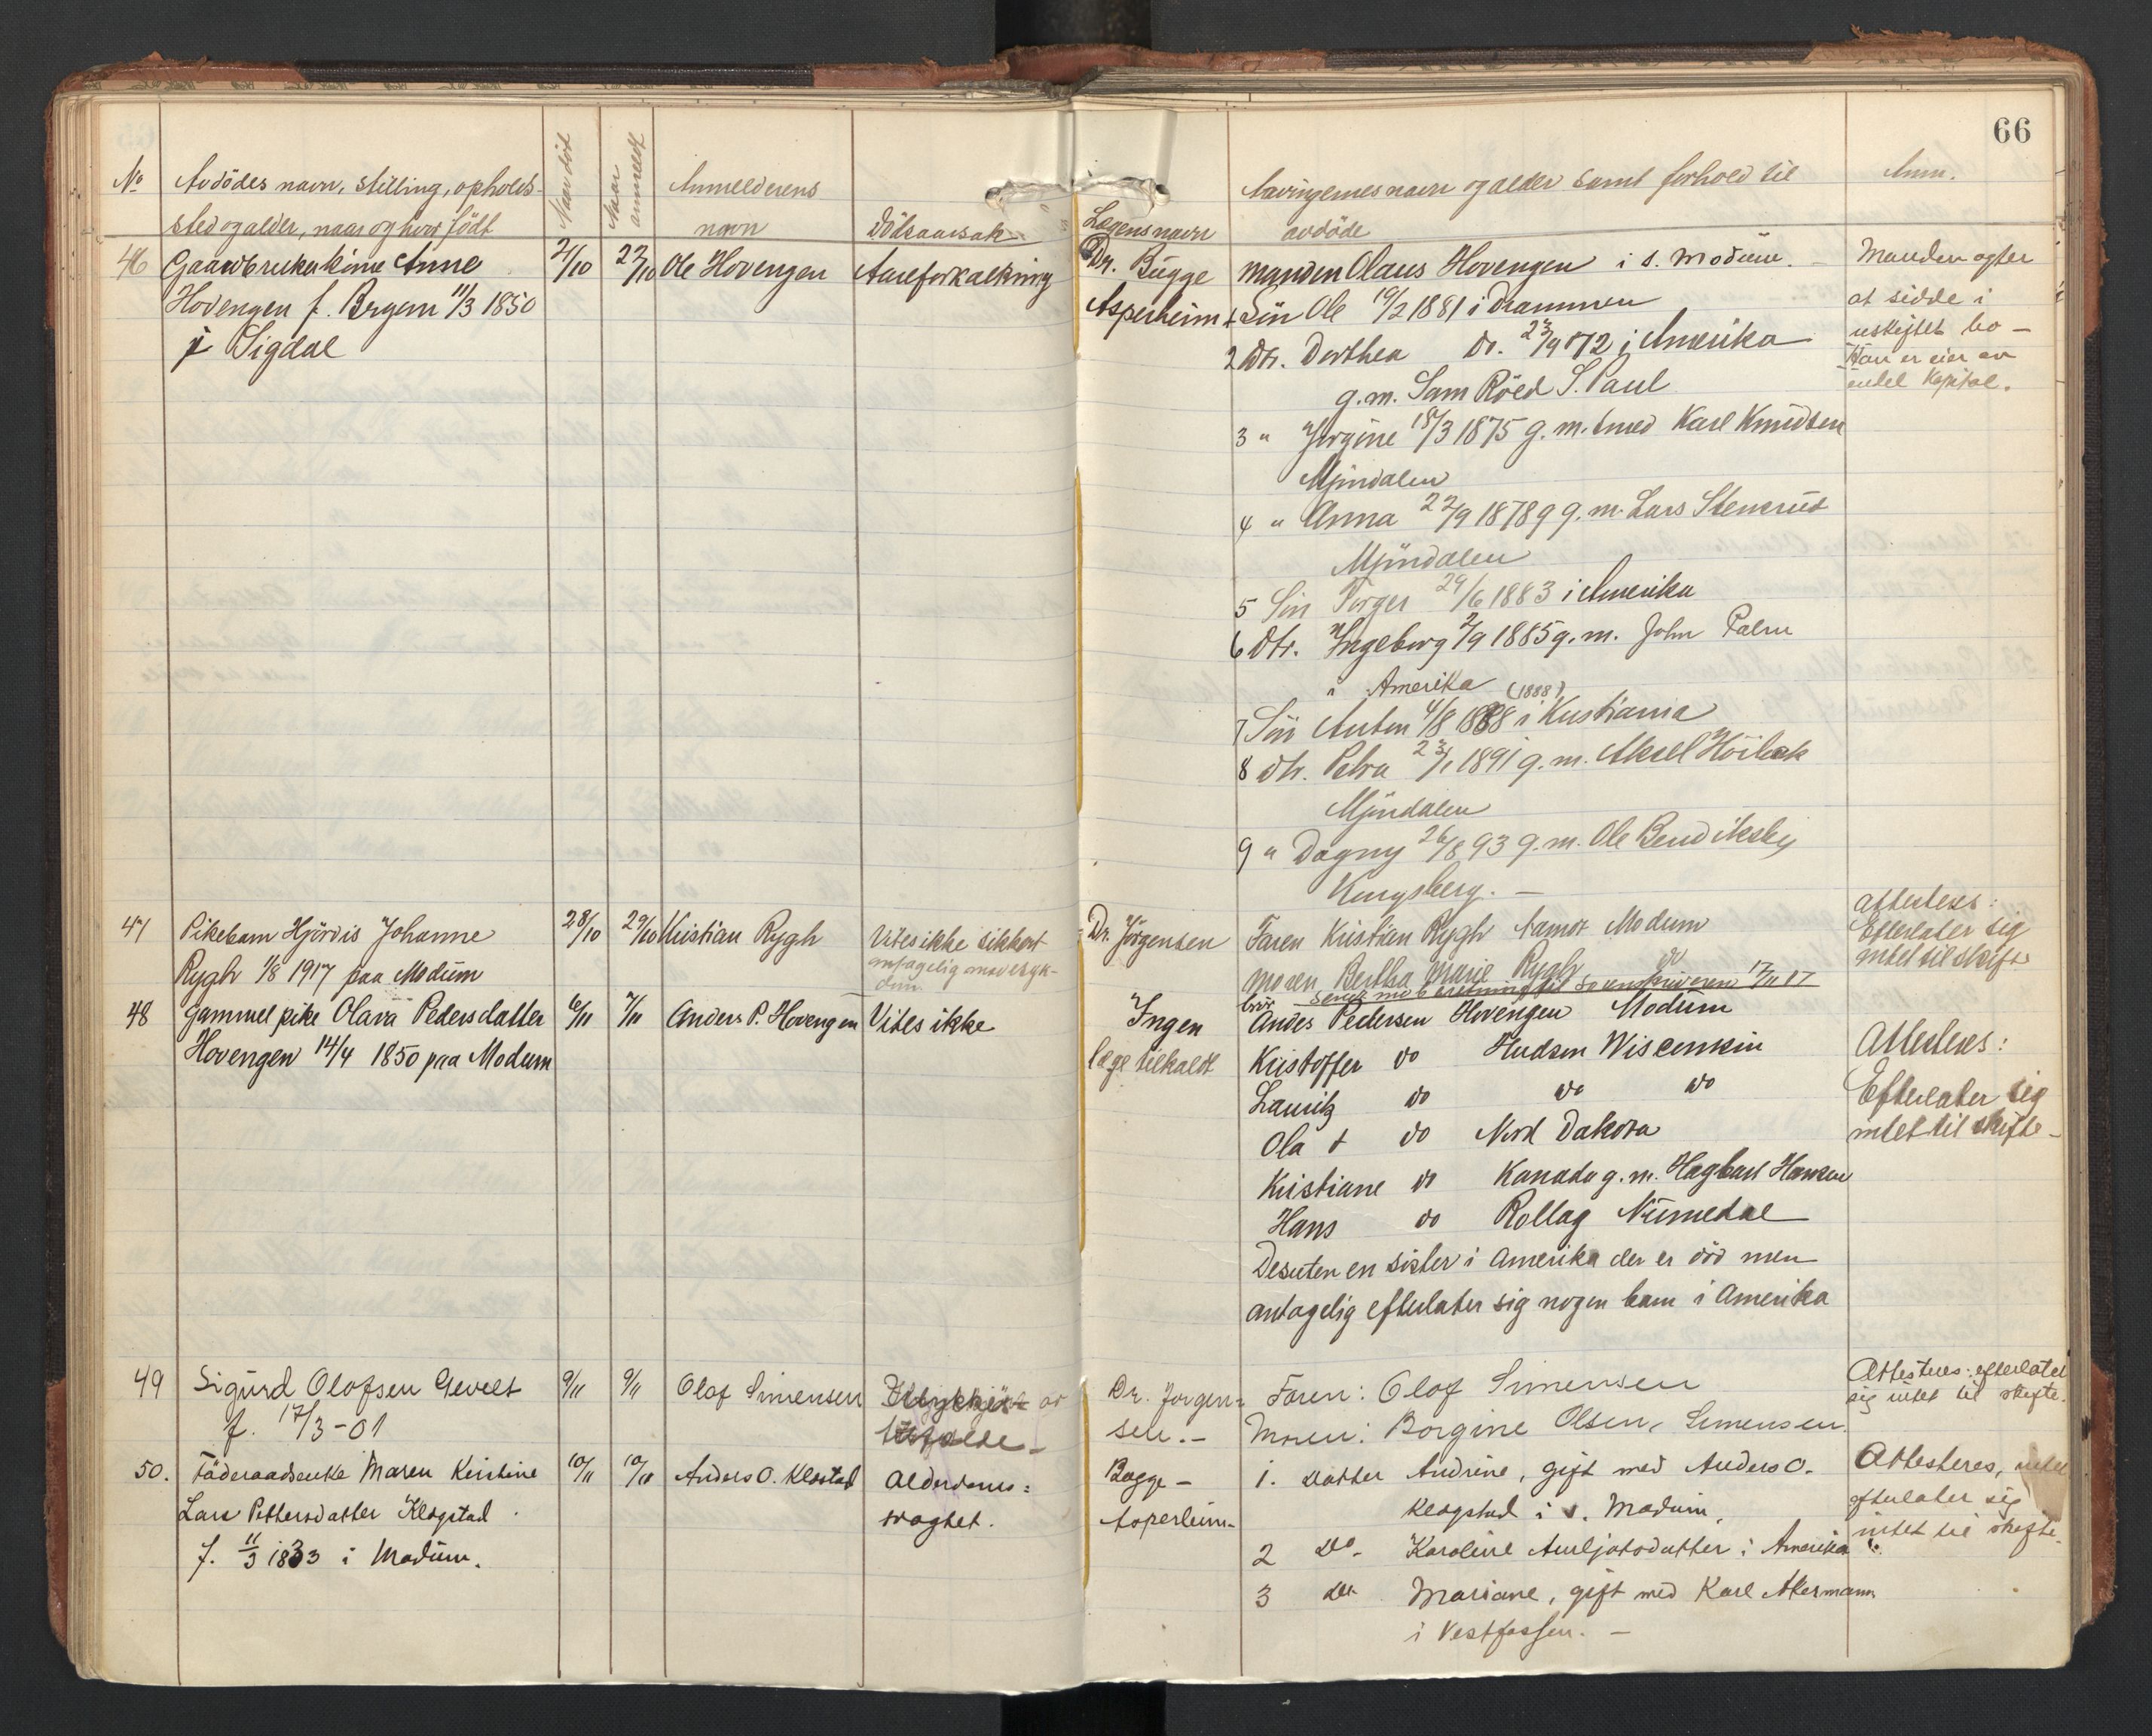 66
No Avdödes navn, stilling, opholds-
sted og alder, naar og hvor født
Naar död
Naar anmeldt
Anmelderens
navn
Dödsaarsak
Lægens navn
Arvingernes navn og alder samt forhold til
avdöde
Anm.
46 Gaardbrukerkone Anne
Hovengen f. Bergem 11/3 1850
i Sigdal
21/10 22/10 Ole Hovengen Aareforkalkning
Dr. Bugge
Asperheim
Manden Olaus Hovengen i s. Modum.
1 Sön Ole 19/2 1881 i Drammen
2 Dtr. Dorthea Do. 23/9 872 i Amerika
g.m. Sam Röed S. Paul
3 " Jorgine 18/3 1875 g.m. smed Karl Knudsen
Mjöndalen
4 " Anna 22/9 1878 g.m. Lars Stenerud
Mjöndalen
5 Sön Torger 29/6 1883 i Amerika
6 Dtr. Ingeborg 2/9 1885 g.m. John Palm
i Amerika
7 Sön Anton 4/8 1888 (1888) i Kristiania
8 Dtr. Petra 23/1 1891 g.m. Aksel Höibak
Mjöndalen
9 " Dagny 26/8 93 g.m. Ole Bendiksby
Kongsberg. —
Manden agter
at sidde i
uskiftet bo —
Han er eier av
endel kapital.
47 Pikebarn Hjördis Johanne
Rygh 1/8 1917 paa Modum
28/10 29/10 Kristian Rygh Vites ikke sikkert
antagelig mavesyk-
dom
Dr. Jörgensen
Faren Kristian Rygh Aamot Modum
Moren Bertha Marie Rygh do
Sendt indberetning til Sorenskriveren 17/11 17
attesteres:
Efterlater sig
intet til skifte
48 Gammel pike Olava Pedersdatter
Hovengen 14/4 1850 paa Modum
6/11 7/11 Anders P. Hovengen Vites ikke
Ingen
læge tilkaldt
bror
Andes Pedersen Hovengen Modum
Kristoffer do Hudson Wisconsin
Lauritz do do do
Ola + do Nord Dakota
Kristiane do Kanada g.m. Hagbart Hansen
Hans do Rollag Numedal
Desuten en sister i Amerika der er död men
antagelig efterlater sig nogen barn i Amerika
Attesteres:
Efterlater sig
intet til skifte —
49 Sigurd Olafsen Gevelt
f. 17/3 - 01
9/11 9/11 Olaf Simensen
Dr. Jorgen=
sen. —
Faren: Olaf Simensen
Moren: Borgine Olsen, Simensen.
Attesteres: efterlater
sig intet til skifte.
50. Föderaadsenke Maren Kirstine
Lars Pettersdatter Klopstad
f. 11/3 1833 i Modum.
10/11 10/11 Anders O. Klostad Alderdoms=
svaghet.
Bugge —
Asperheim —
1. Datter Andrine, gift med Anders O.
Klopstad i s. Modum,
2 do — Karoline i Amerika
3 do Mariane, gift med Karl Akermann
i Vestfossen. —
Attesteres,
efterlater sig
intet til skifte.